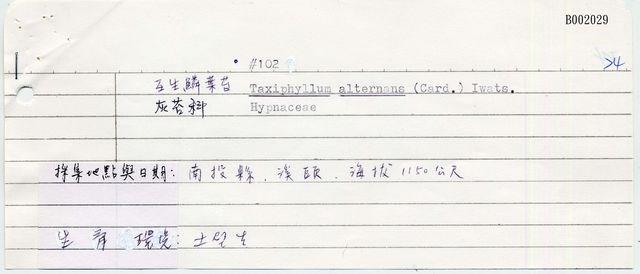 B002029
#102
24
互生鱗葉苔 Taxiphyllum alternans (Card.) Iwats.
灰苔科 Hypnaceae
採集地點與日期: 南投縣、溪頭、海拔1150公尺
生育環境: 土生